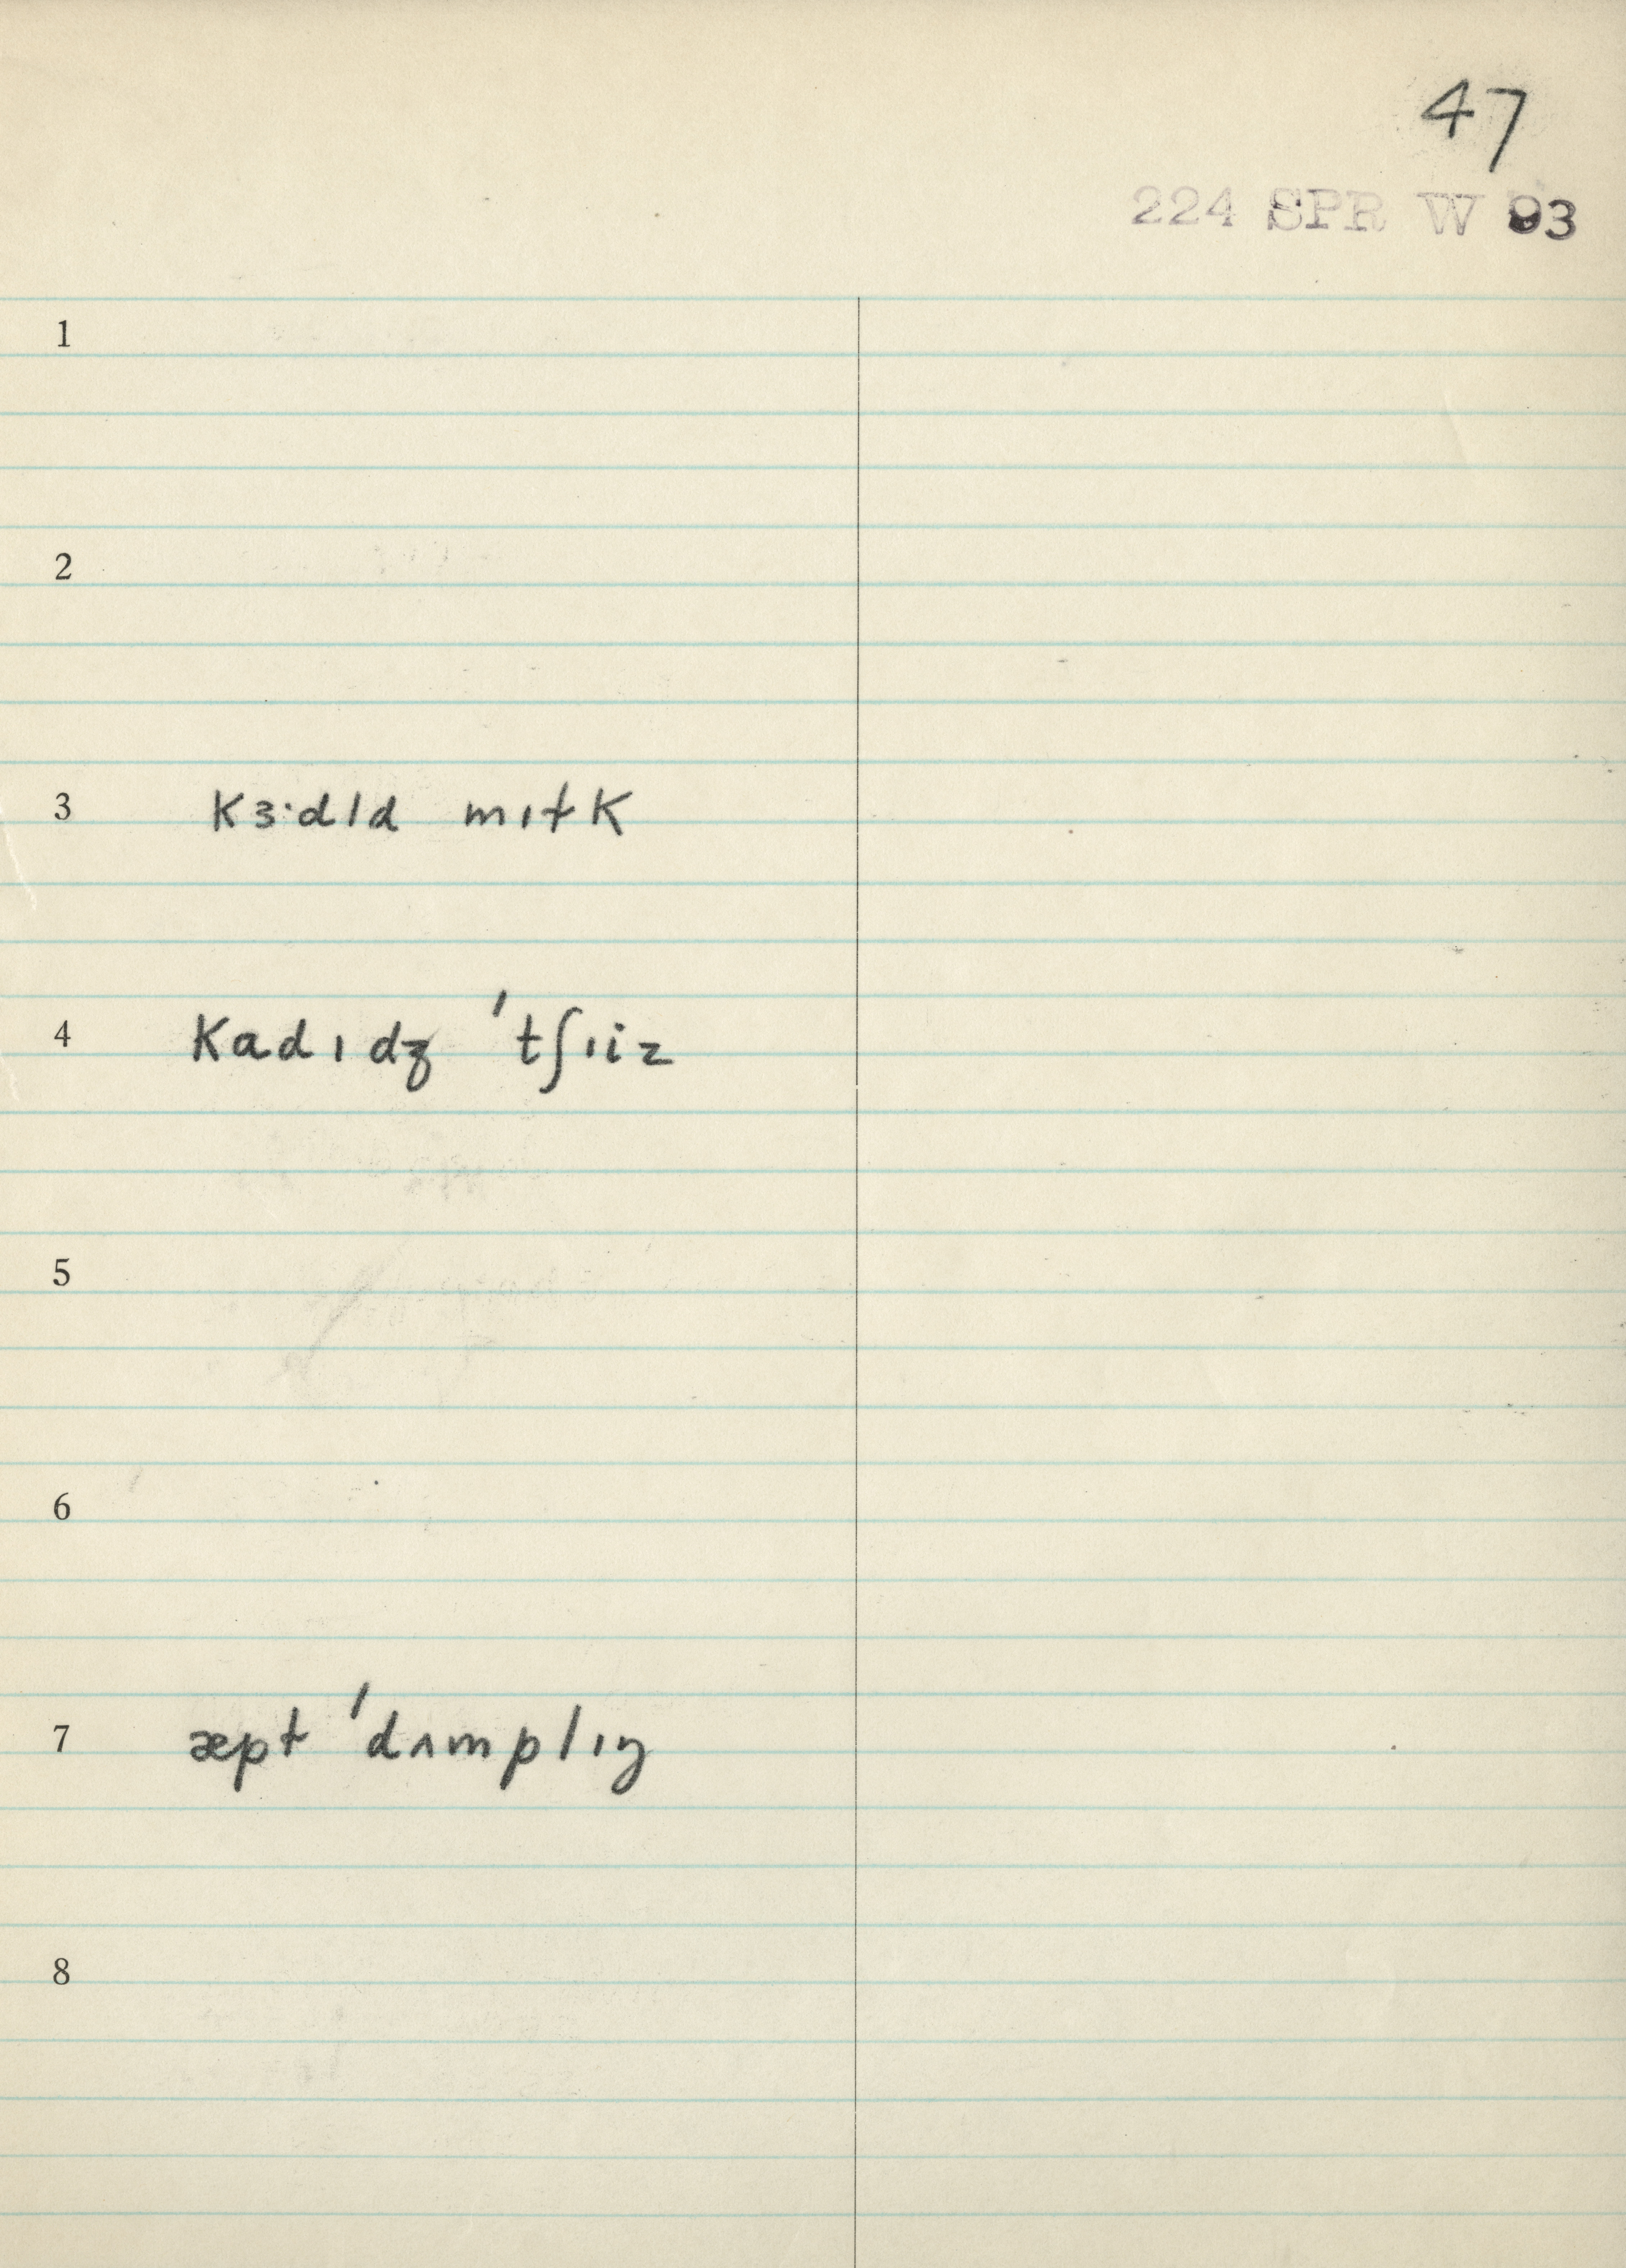 47
224 SPR W 93
1
2
3 kɜ·dld mɪɫk
4 kadɪdʒ ˈtʃɪiz
5
6
7 æpɫ ˈdʌmplɪŋ
8